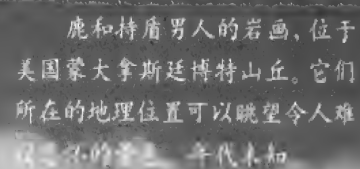 鹿和持盾男人的岩画，位于
美国蒙大拿斯廷博特山丘。它们
所在的地理位置可以眺望令人难
的 年代未知